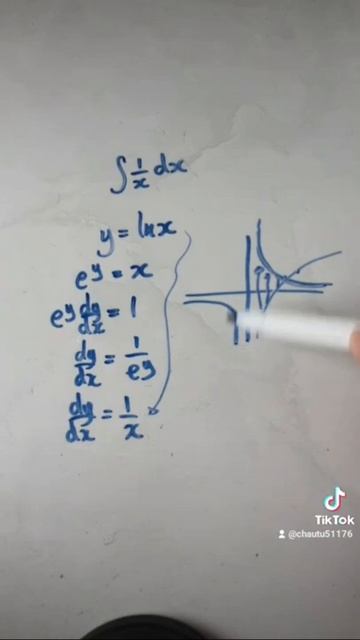 ∫ 1/x dx
y = ln x
e^y = x
e^y dy/dx = 1
dy/dx = 1/e^y
dy/dx = 1/x
TikTok
@chautu51176